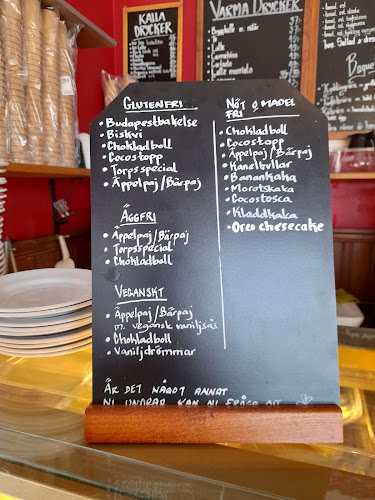 KALLA
DRYCKER
VARMA DRYCKER
GLUTENFRI
• Budapestbakelse
• Biskvi
• Chokladboll
• Cocostopp
• Torpsspecial
• Äppelpaj/Bärpaj
ÄGGFRI
• Äppelpaj/Bärpaj
• Torpsspecial
• Chokladboll
VEGANSKT
• Äppelpaj/Bärpaj
m. vegansk vaniljsås
• Chokladboll
• Vaniljdrömmar
NÖT & MANDEL
FRI
• Chokladboll
• Cocostopp
• Äppelpaj/Bärpaj
• Kanelbullar
• Banankaka
• Morotskaka
• Cocostosca
• Kladdkaka
• Oreo cheesecake
ÄR DET NÅGOT ANNAT
NI UNDRAR KAN NI FRÅGA OSS